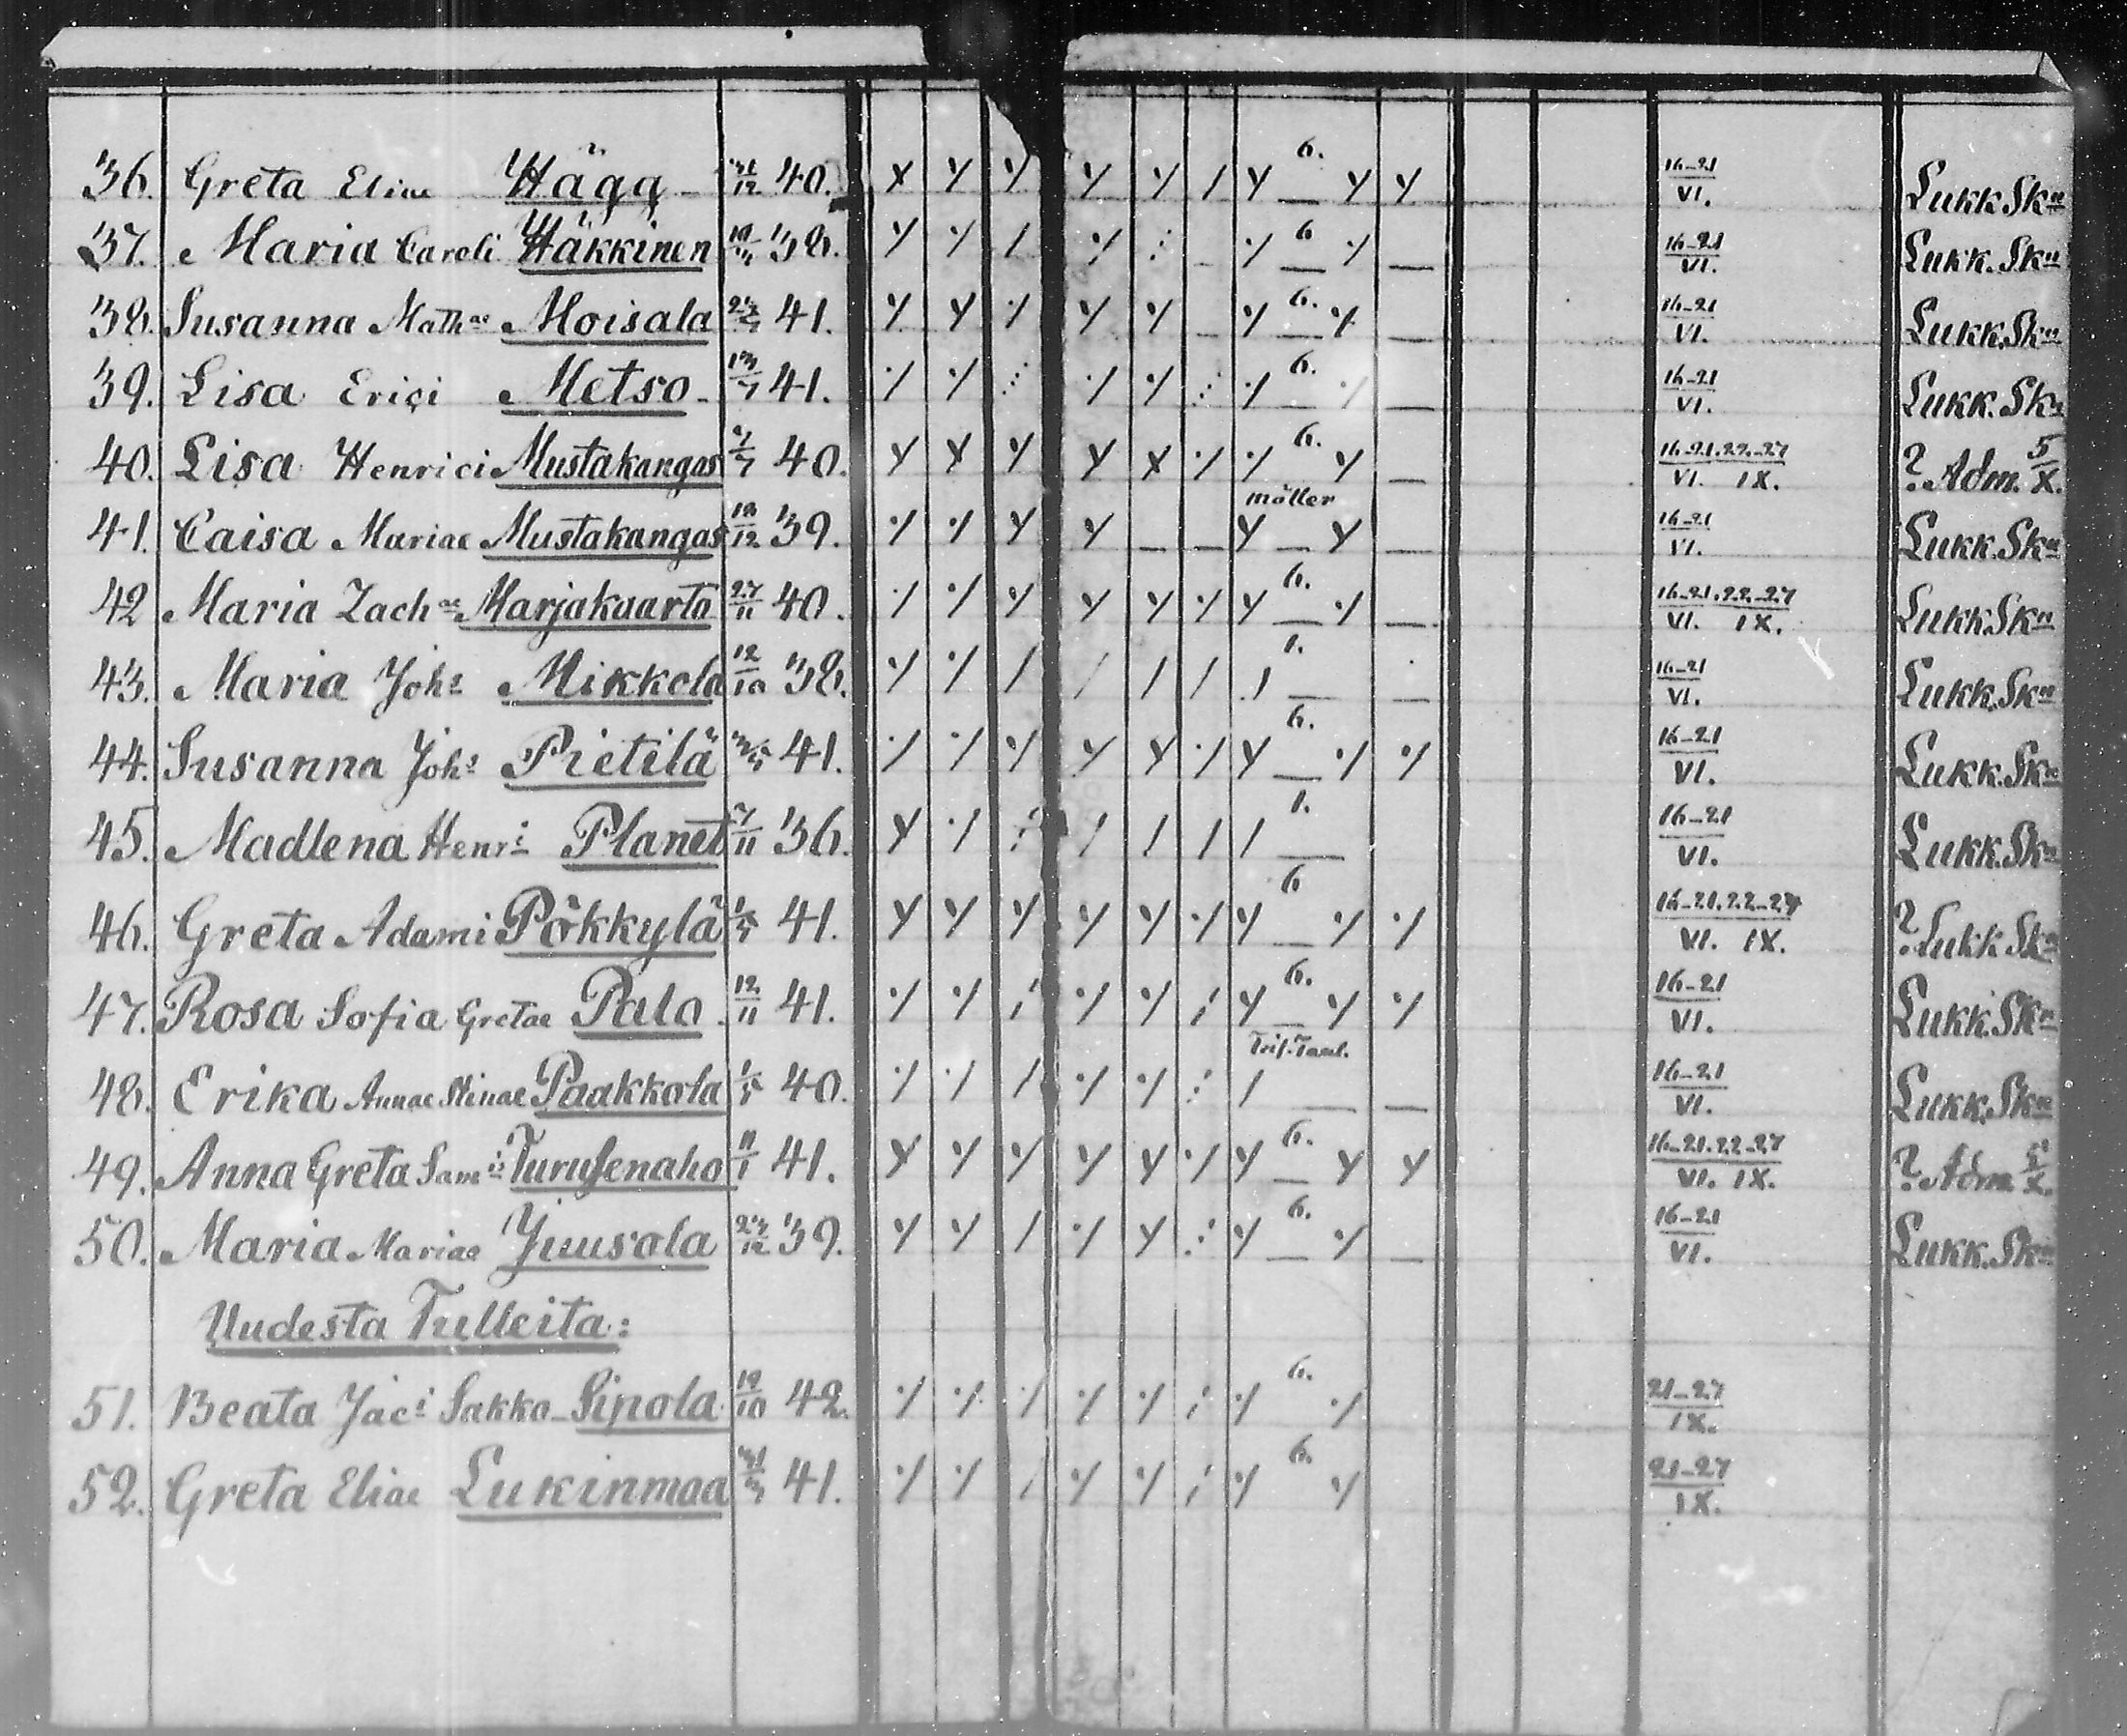 36. Greta Eliae Hägg 31/12 40. 6. 16-21/VI. Lukk Skn
37. Maria Caroli Häkkinen 38. 6 16-21/VI. Lukk. Skn
38. Susanna Mathae Moisala 41. 6. 16-21/VI. Lukk. Skn
39. Lisa Erici Metso 41. 6. 16-21/VI. Lukk. Skn
40. Lisa Henrici Mustakangas 40. 6. 16-21. 22-27/VI. IX. ? Adm. 5/X.
41. Caisa Mariae Mustakangas 12 39. möller 16-21/VI. Lukk. Skn
42 Maria Zachae Marjakaarto 27/11 40. 6. 16-21. 22-27/VI. IX. Lukk Skn
43. Maria Johs Mikkola 12/10 38. 1. 16-21/VI. Lukk. Skn
44. Susanna Johs Pietilä 41. 6. 16-21/VI. Lukk. Skn
45. Madlena Henri Planet 7/11 36. 1. 16-21/VI. Lukk. Skn
46. Greta Adami Pökkylä 41. 6 16-21. 22-27/VI. IX. ? Lukk Skn
47. Rosa Sofia Gretae Palo 12/11 41. 6. 16-21/VI. Lukk. Skn
48. Erika Annae Stinae Paakkola 40. 16-21/VI. Lukk. Skn
49. Anna Greta Samis Turusenaho 11/1 41. 6. 16-21. 22-27/VI. IX. ? Adm 5/X.
50. Maria Mariae Juusola 39. 6. 16-21/VI. Lukk. Skn
Uudesta Tulleita:
51. Beata Jaci Sakko-Sipola 19/10 42. 6. 21-27/IX.
52. Greta Eliae Lukinmaa 41. 6. 21-27/IX.